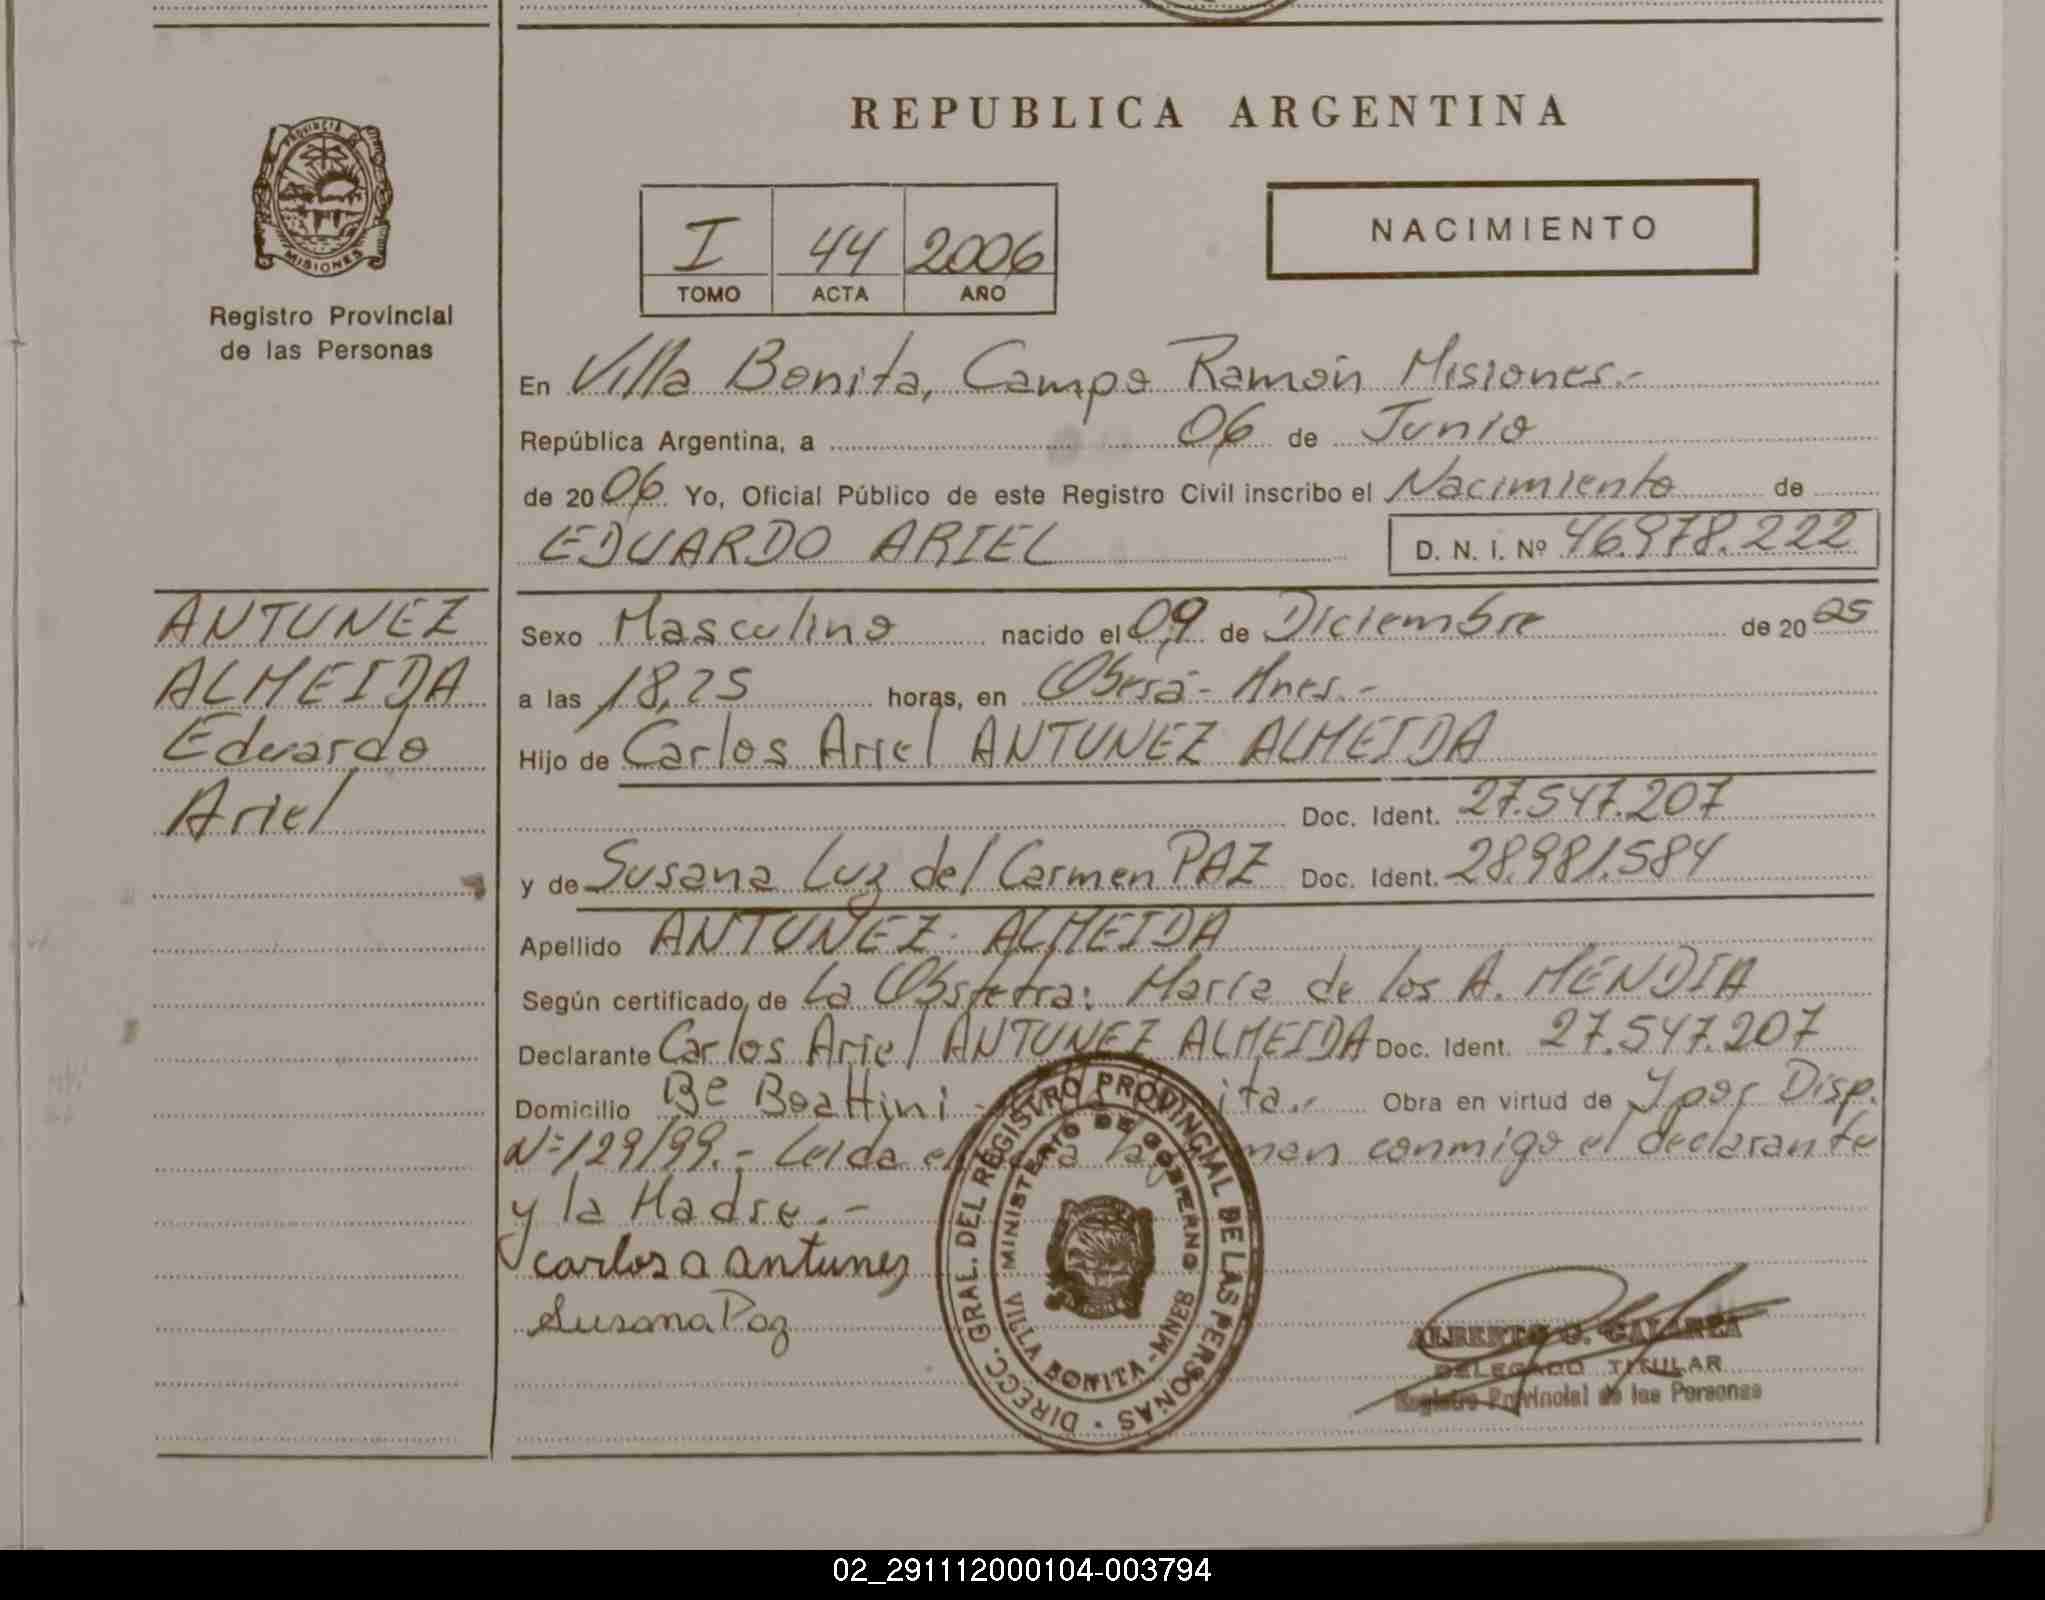 REPUBLICA ARGENTINA
PROVINCIA DE
MISIONES
Registro Provincial
de las Personas
I 44 2006
TOMO ACTA AÑO
NACIMIENTO
En Villa Bonita, Campo Ramón Misiones.-
República Argentina, a 06 de Junio
de 2006 Yo, Oficial Público de este Registro Civil inscribo el Nacimiento de
EDUARDO ARIEL D. N. I. Nº 46.978.222
ANTUNEZ
ALMEIDA
Eduardo
Ariel
Sexo Masculino nacido el 09 de Diciembre de 20 05
a las 18,25 horas, en Oberá - Mnes.-
Hijo de Carlos Ariel ANTUNEZ ALMEIDA
Doc. Ident. 27.547.207
y de Susana Luz del Carmen PAZ Doc. Ident. 28.981.584
Apellido ANTUNEZ - ALMEIDA
Según certificado de La Obstetra: María de los A. MENDIA
Declarante Carlos Ariel ANTUNEZ ALMEIDA Doc. Ident. 27.547.207
Domicilio Bº Beattini - Obra en virtud de Y por Disp.
Nº 129/99.- Leida el conmigo el declarante
y la Madre.-
carlos a antunez
Susana Paz
DIRECC. GRAL. DEL REGISTRO PROVINCIAL DE LAS PERSONAS
MINISTERIO DE GOBIERNO
VILLA BONITA - MNES
ALBERTO G. GALARZA
DELEGADO TITULAR
Registro Provincial de las Personas
02_291112000104-003794